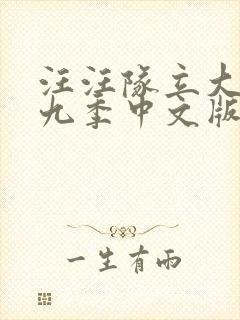 汪汪队立大
九季中文版
一生有雨